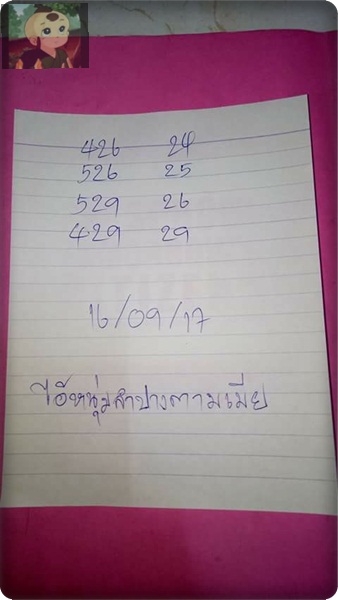 426 24
526 25
529 26
429 29
16/09/17
ไอ้หนุ่มลำปางตามเมีย